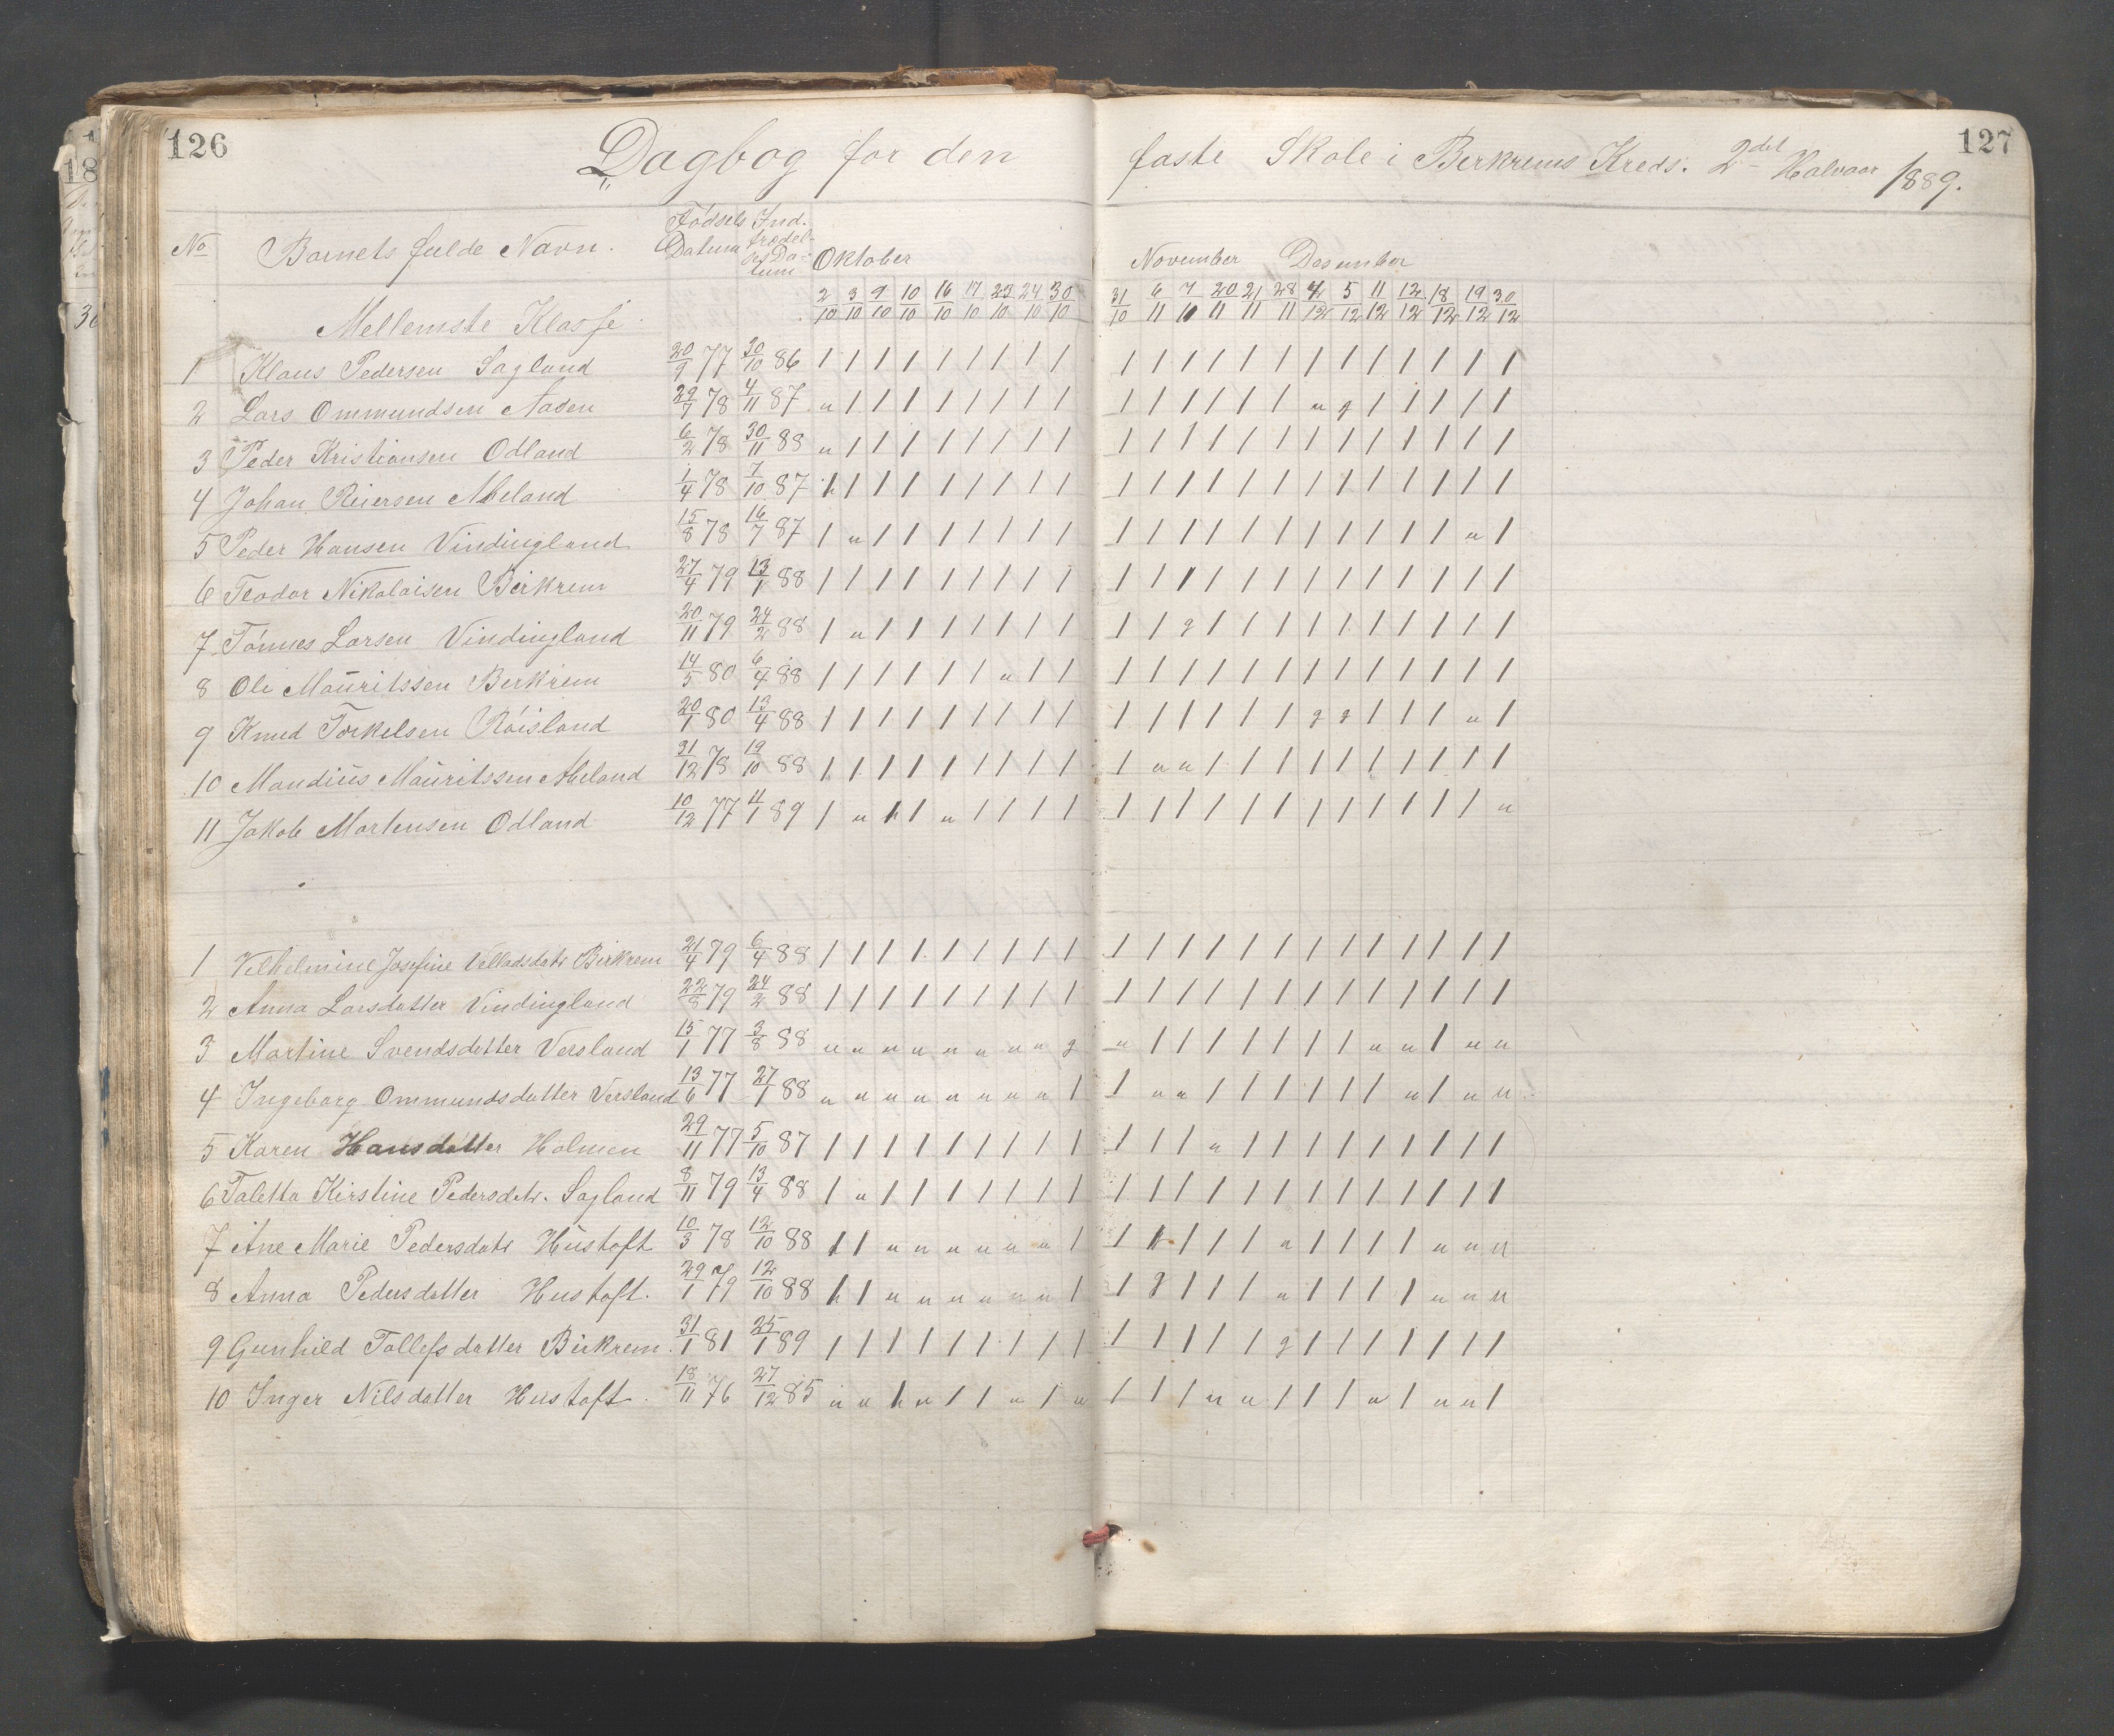 126
Dagbog for den faste Skole i Berkrems Kreds. 2det Halvaar 1889.
127
No Barnets fulde Navn. Fødsels Datum Indtrædelses Datum Oktober November Desember
2/10 3/10 9/10 10/10 16/10 17/10 23/10 24/10 30/10 31/10 6/11 7/11 20/11 21/11 28/11 4/12 5/12 11/12 12/12 18/12 19/12 30/12
Mellemste Klasse
1 Klaus Pedersen Sagland 20/9 77 30/10 86 / / / / / / / / / / / / / / / / / / / / / /
2 Lars Ommundsen Aasen 29/7 78 4/11 87 u / / / / / / / / / / / / / / u g / / / / /
3 Peder Kristiansen Odland 6/2 78 30/11 88 u / / / / / / / / / / / / / / / / / / / / /
4 Johan Reiersen Meland 1/4 78 7/10 87 h / / / / / / / / / / / / / / / / / / / / /
5 Peder Hansen Vindingland 15/8 78 16/7 87 / u / / / / / / / / / / / / / / / / / / u /
6 Teodor Nikolaisen Birkrem 27/4 79 13/1 88 / / / / / / / / / / / / / / / / / / / / / /
7 Tønnes Larsen Vindingland 20/11 79 24/2 88 / u / / / / / / / / / g / / / / / / / / / /
8 Ole Mauritssen Berkrem 14/5 80 6/4 88 / / / / / / u / / / / / / / / / / / / / / /
9 Knud Torkelsen Røisland 20/1 80 13/4 88 / / / / / / / / / / / / / / / g g / / / u /
10 Mandius Mauritssen Meland 31/12 78 19/10 88 / / / / / / / / / / u u / / / / / / / / / /
11 Jakob Martensen Odland 10/12 77 11/1 89 / u h / u / / / / / / / / / / / / / / / / u
1 Vilhelmine Josefine Velladsdatr Birkrem 21/4 79 6/4 88 / / / / / / / / / / / / / / / / / / / / / /
2 Anna Larsdatter Vindingland 22/8 79 24/2 88 / / / / / / / / / / / / / / / / / / / / / /
3 Martine Svendsdatter Versland 15/1 77 3/8 88 u u u u u u u u g u / / / / / / / u u / u u
4 Ingeborg Ommundsdatter Versland 13/6 77 27/1 88 u u u u u u u u / / u u / / / / / / u / u u
5 Karen Hansdatter Holmen 29/11 77 5/10 87 / / / / / / / / / / / / u / / / / / / / / /
6 Taletta Kirstine Pedersdatr. Sagland 8/11 79 13/4 88 / u / / / / / / / / / / / / / / / / / / / /
7 Ane Marie Pedersdatr Hustoft 10/3 78 12/10 88 h / u u u u u u / / h / / / u / / / / u u u
8 Anna Pedersdatter Hustoft. 29/1 79 12/10 88 h / u u u u u u / / g / / / u / / / / u u u
9 Gunhild Tollefsdatter Birkrem. 31/1 81 25/1 89 / / / / / / / / / / / / / / g / / / / / / /
10 Inger Nilsdatter Hustoft. 18/11 76 27/12 85 u u h u / / u / u / / / u u / / / u / u u /